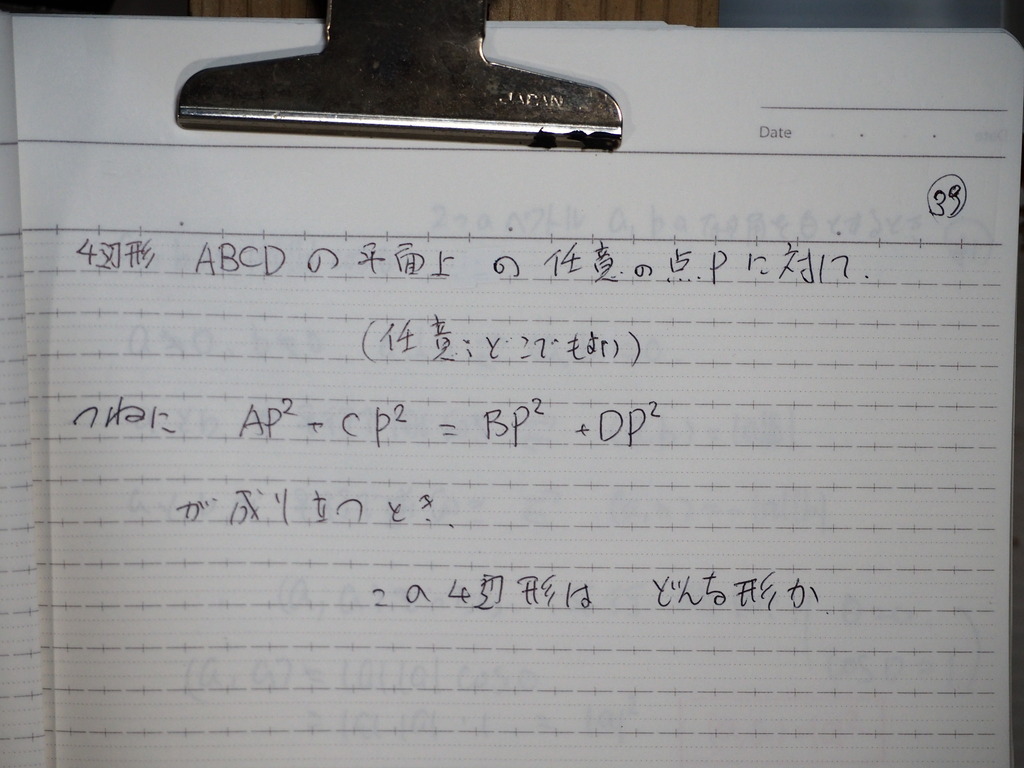 JAPAN
Date
39
4辺形 ABCD の 平面上 の 任意の点Pに対して.
(任意:どこでもよい)
つねに AP² + CP² = BP² + DP²
が 成り立つとき.
この4辺形は どんな形か.